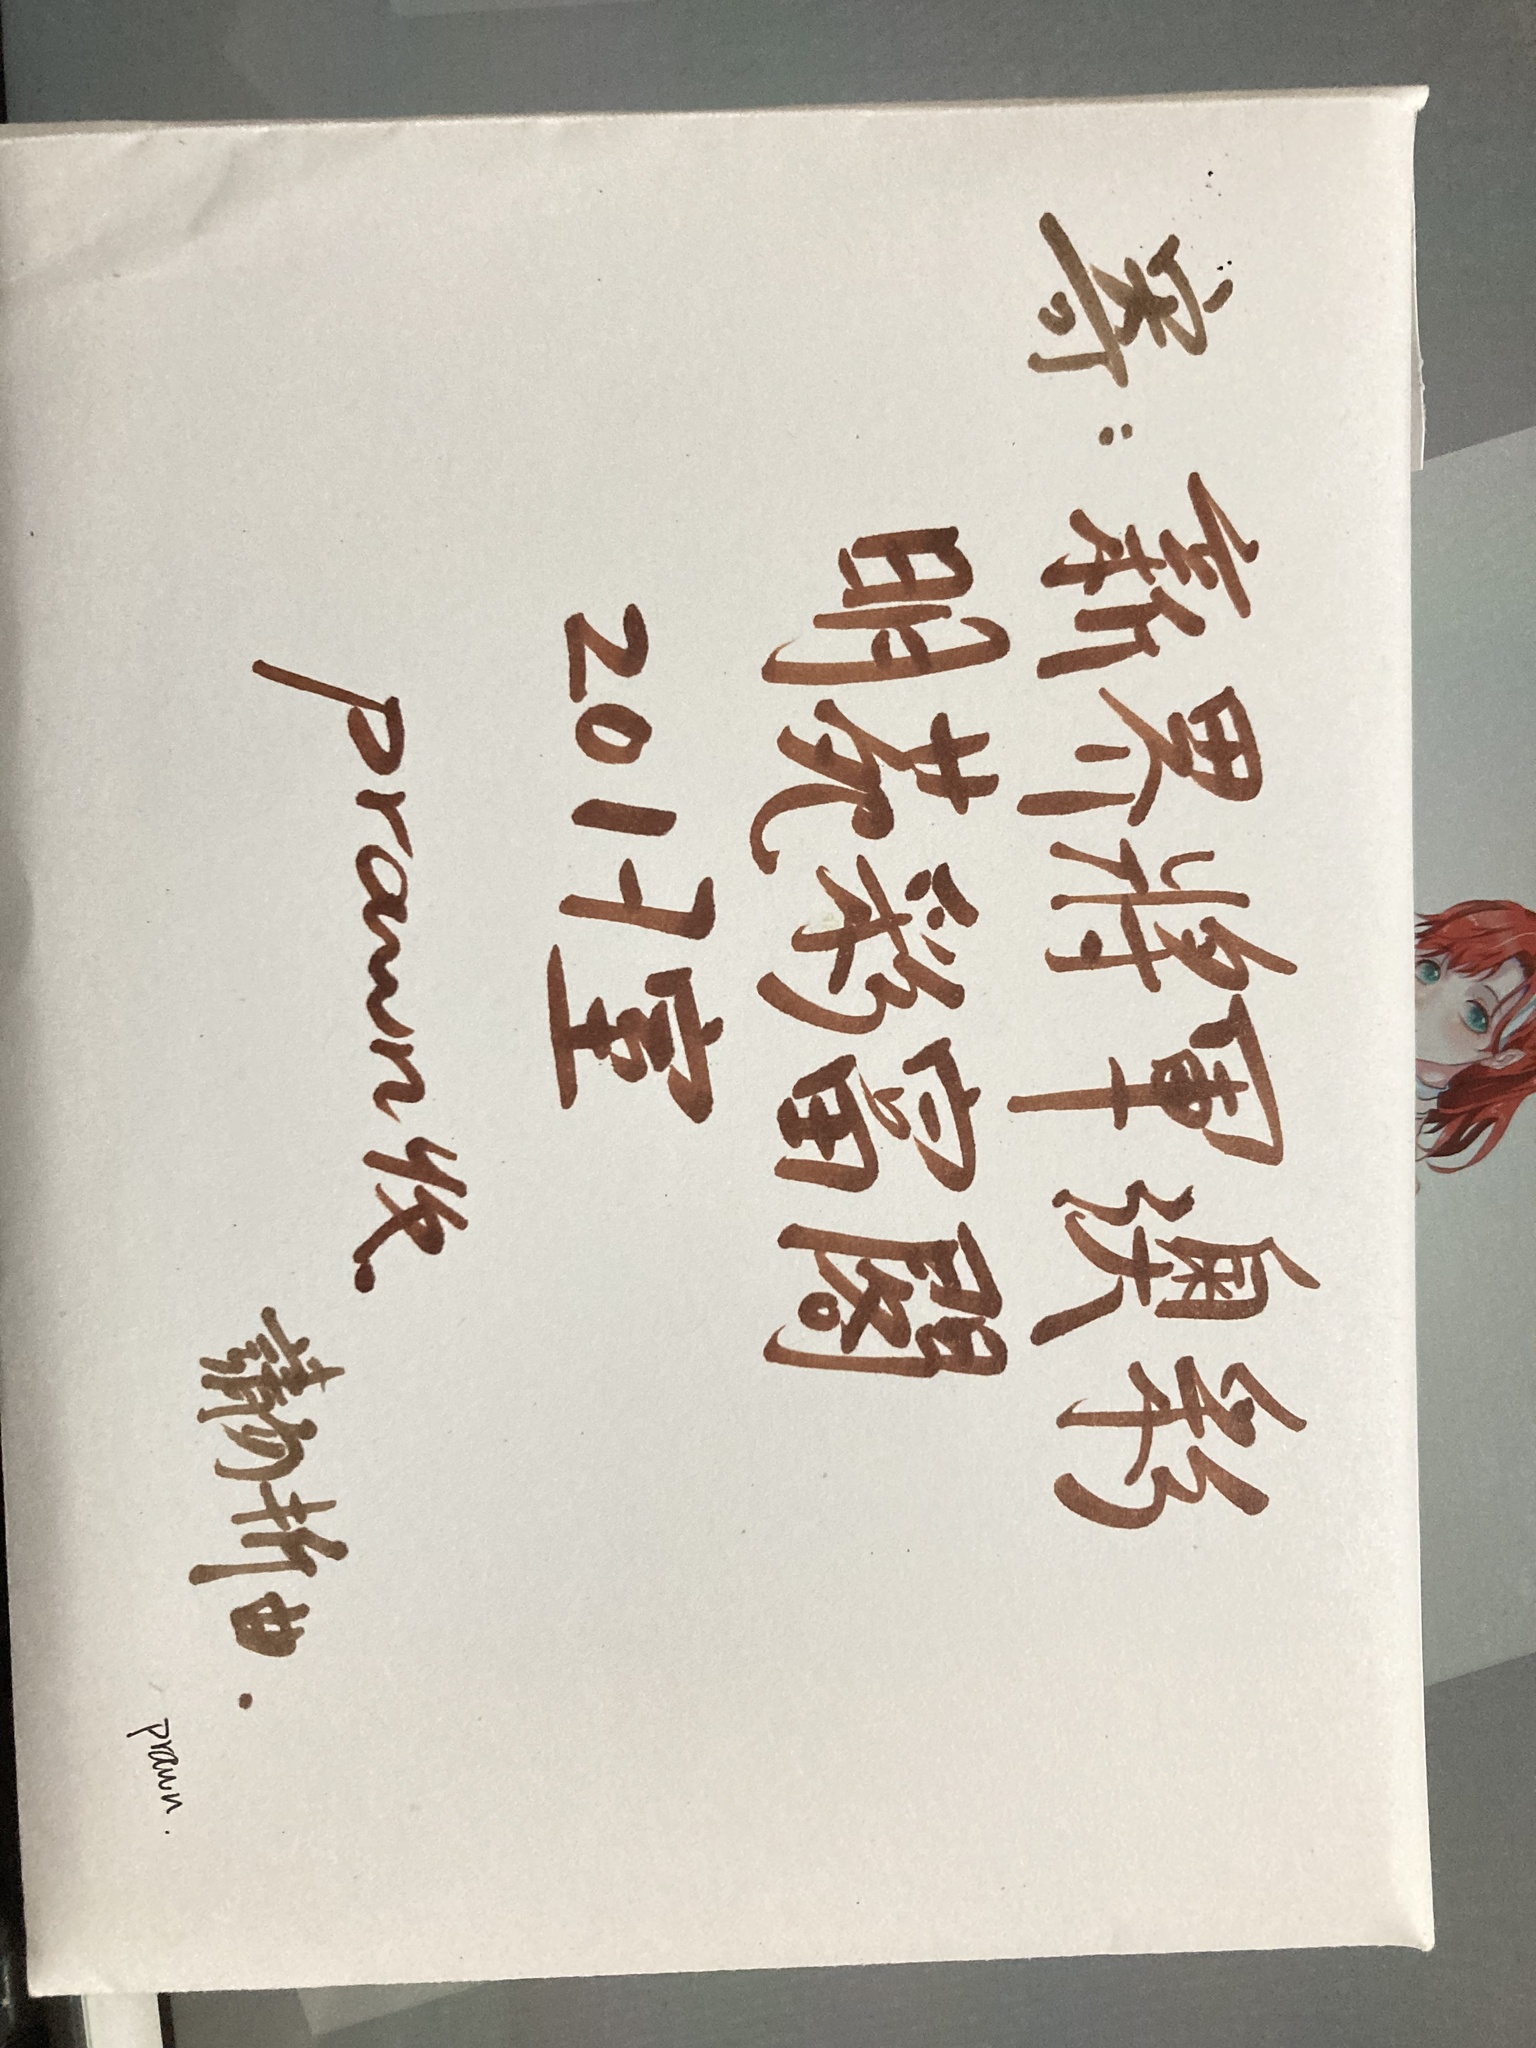 寄: 新界將軍澳彩
明苑彩富閣
2017室
prawn收.
請勿折曲.
prawn.